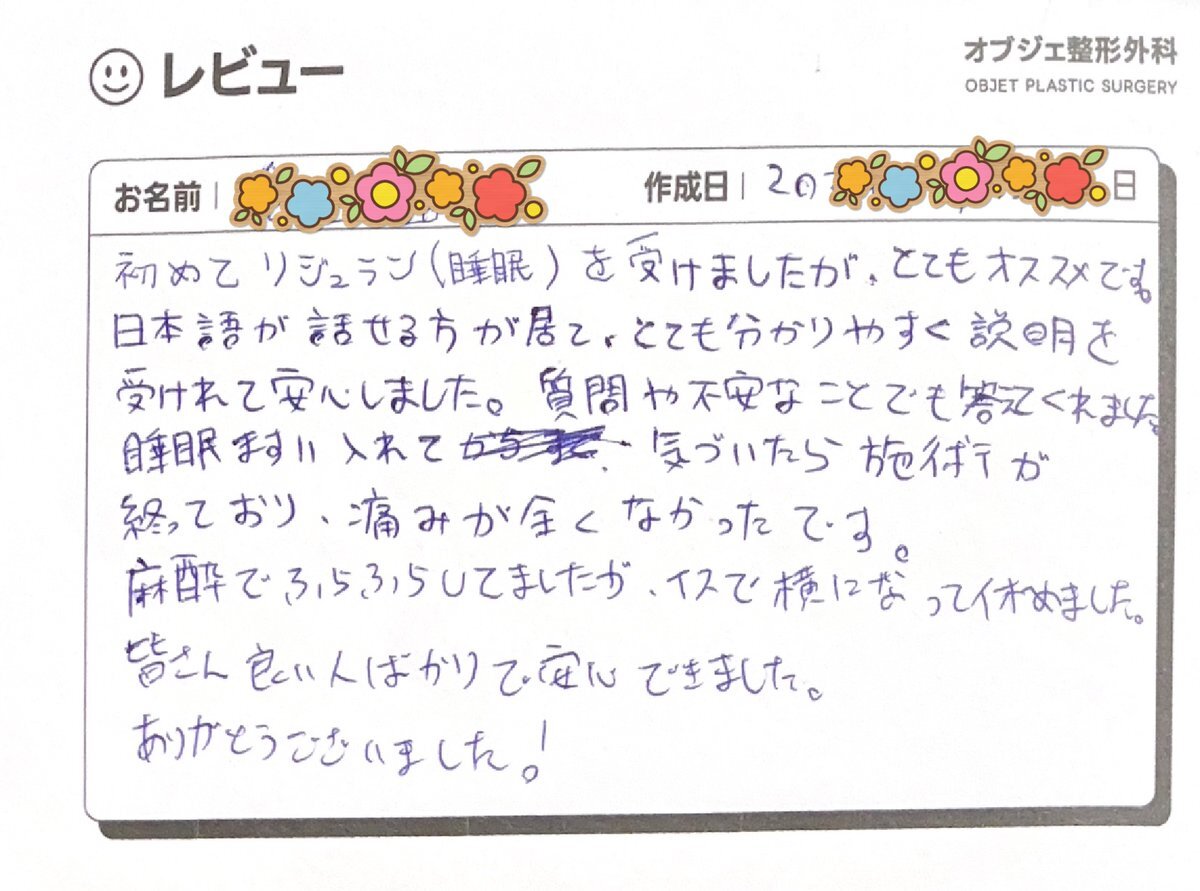 レビュー
オブジェ整形外科
OBJET PLASTIC SURGERY
お名前
作成日 20 日
初めてリジュラン(睡眠)を受けましたが、とてもオススメです。
日本語が話せる方が居て、とても分かりやすく説明を
受けれて安心しました。質問や不安なことでも答えてくれました。
睡眠ますい入れて 気づいたら施術が
終っており、痛みが全くなかったです。
麻酔でふらふらしてましたが、イスで横になって休めました。
皆さん良い人ばかりで安心できました。
ありがとうございました!